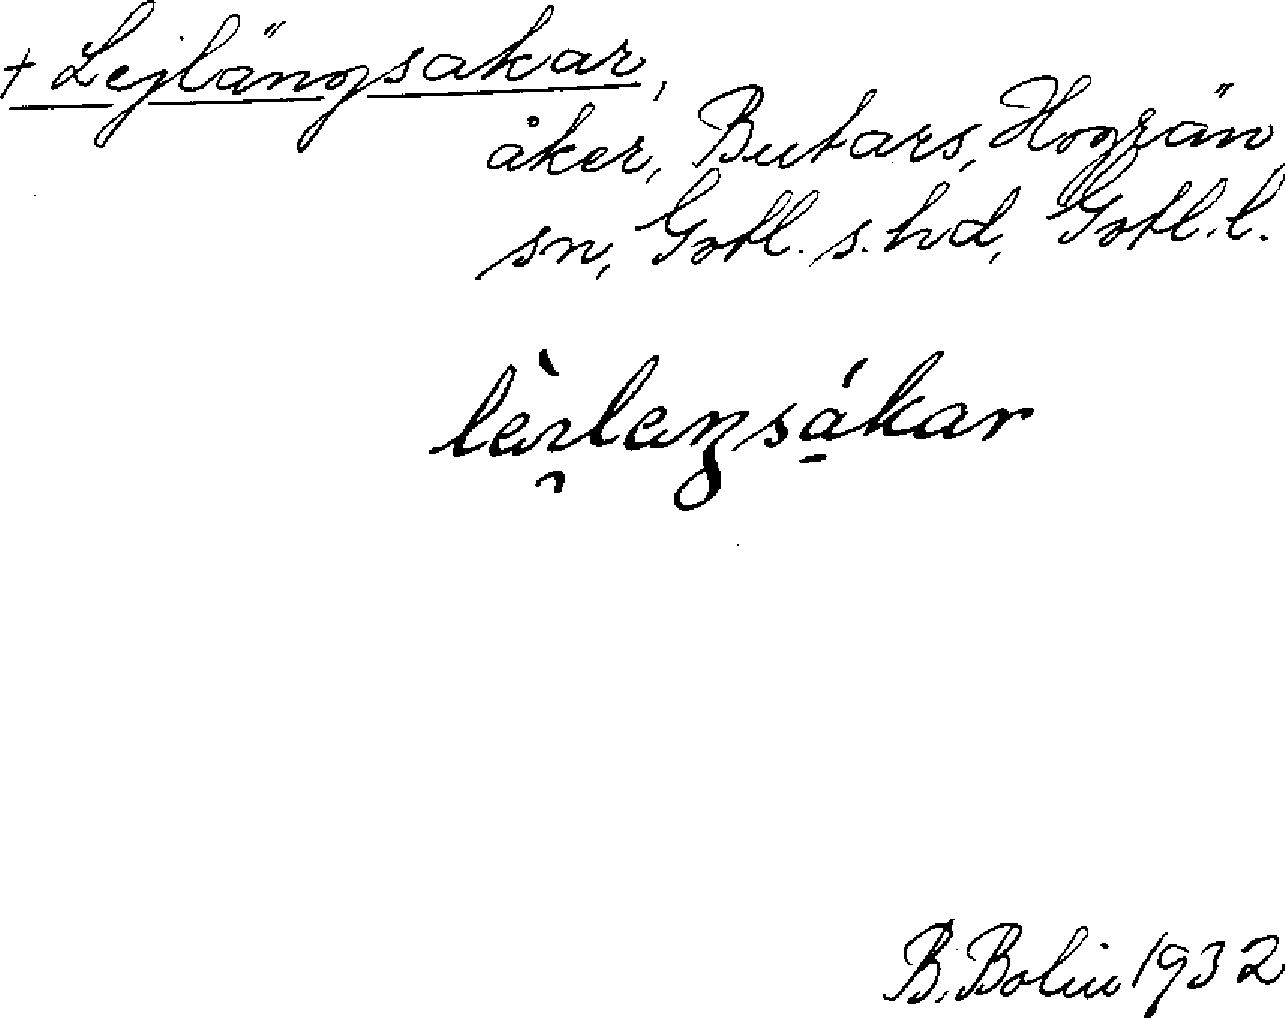 + Lejlängsakar,
åker, Butars, Hogrän
sn, Gotl. s. hd, Gotl. l.
B. Bolin 1932